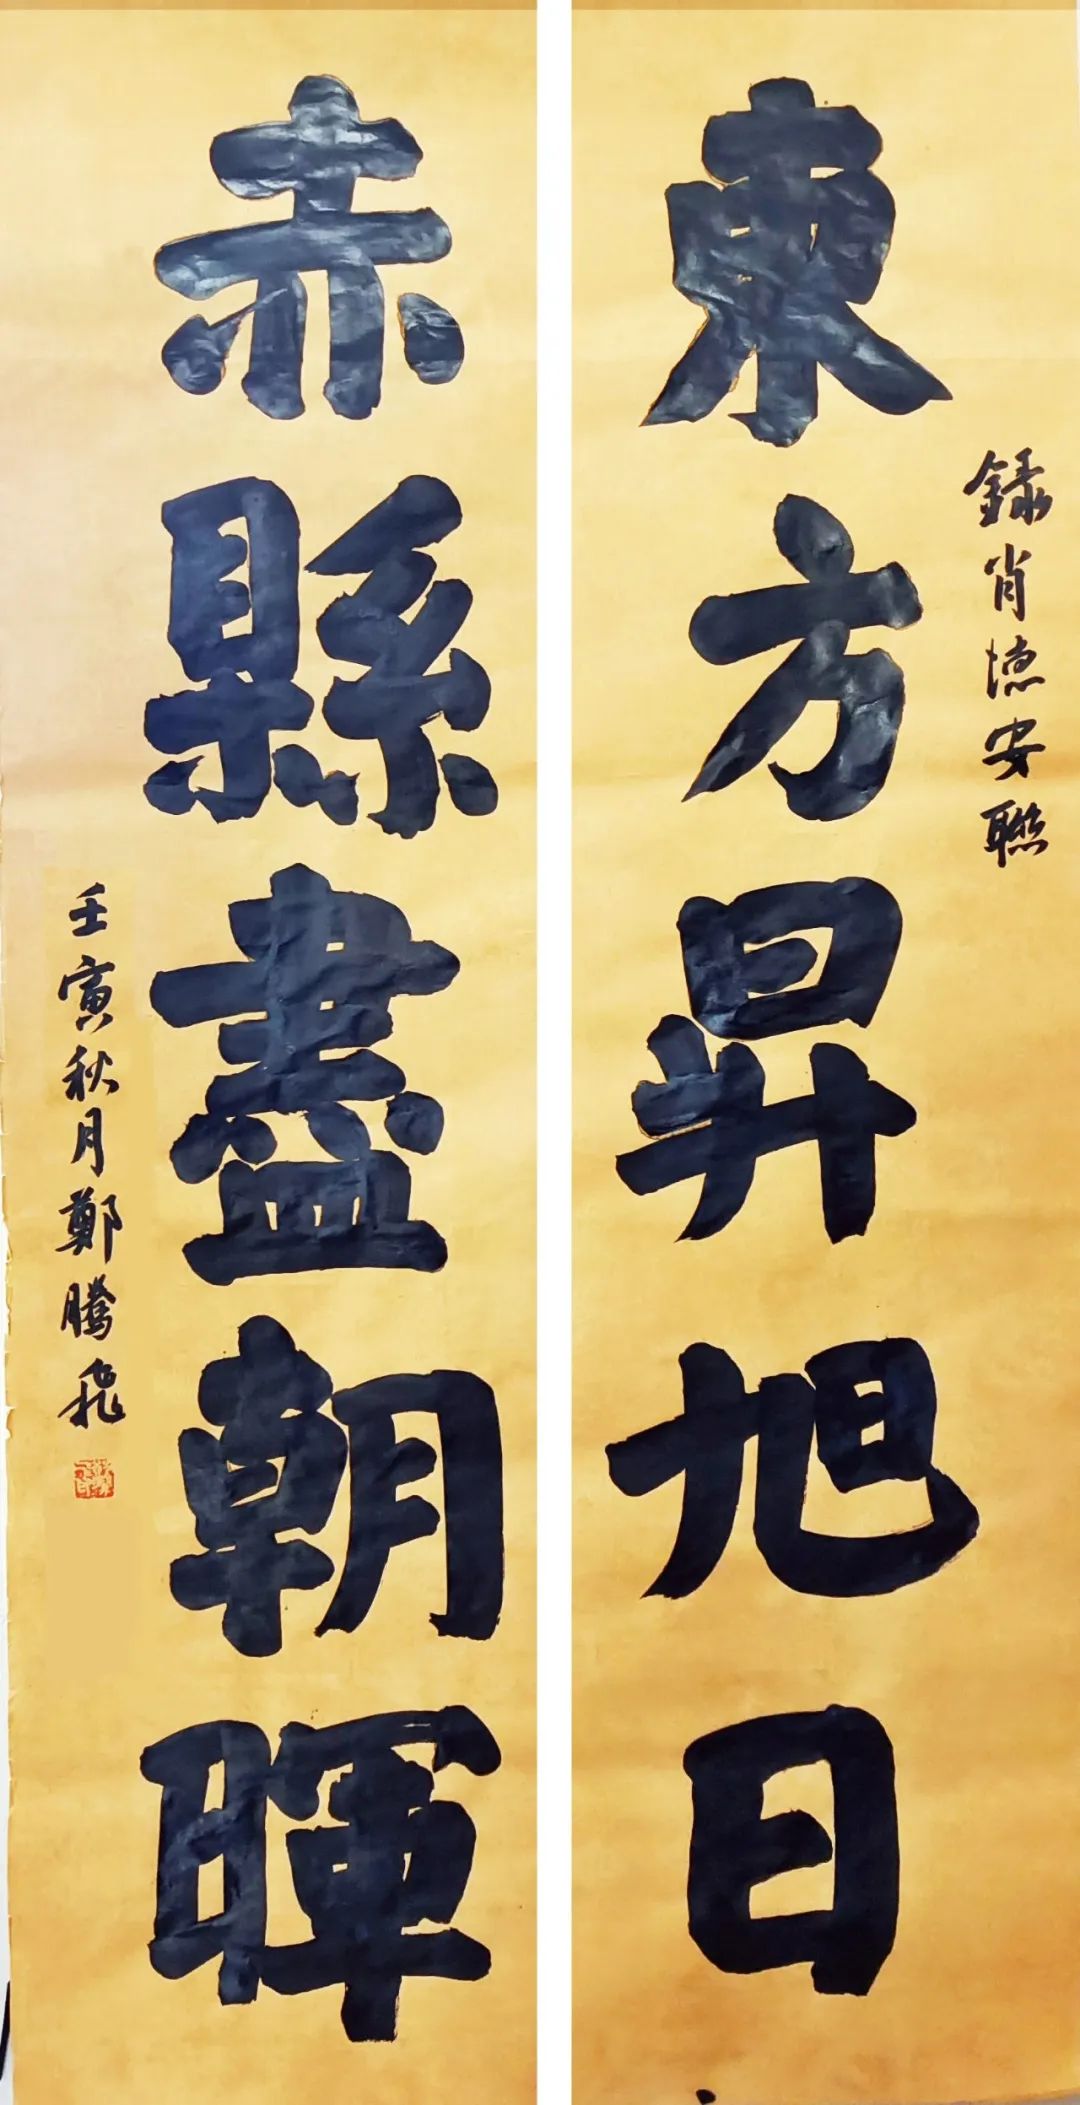 東方昇旭日
錄肖德安聯
赤縣盡朝暉
壬寅秋月鄭騰飛